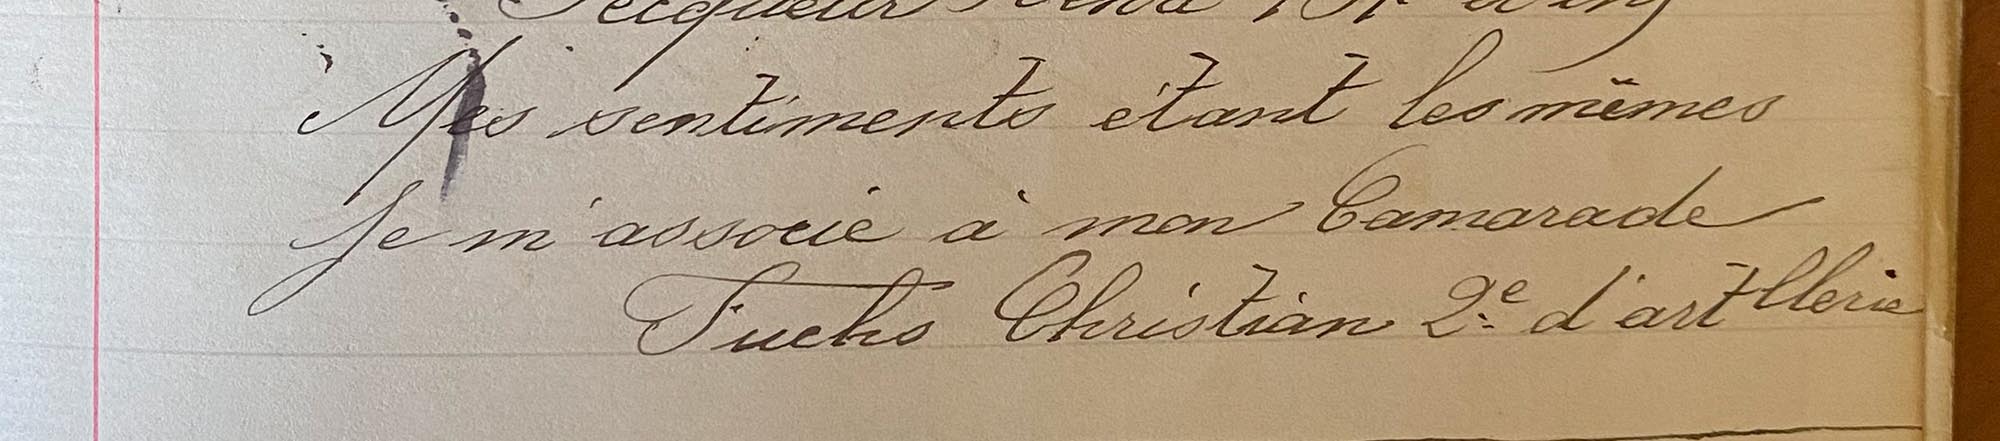 Mes sentiments étant les mêmes
Je m'associe à mon Camarade
Fuchs Christian 2e d'artllerie